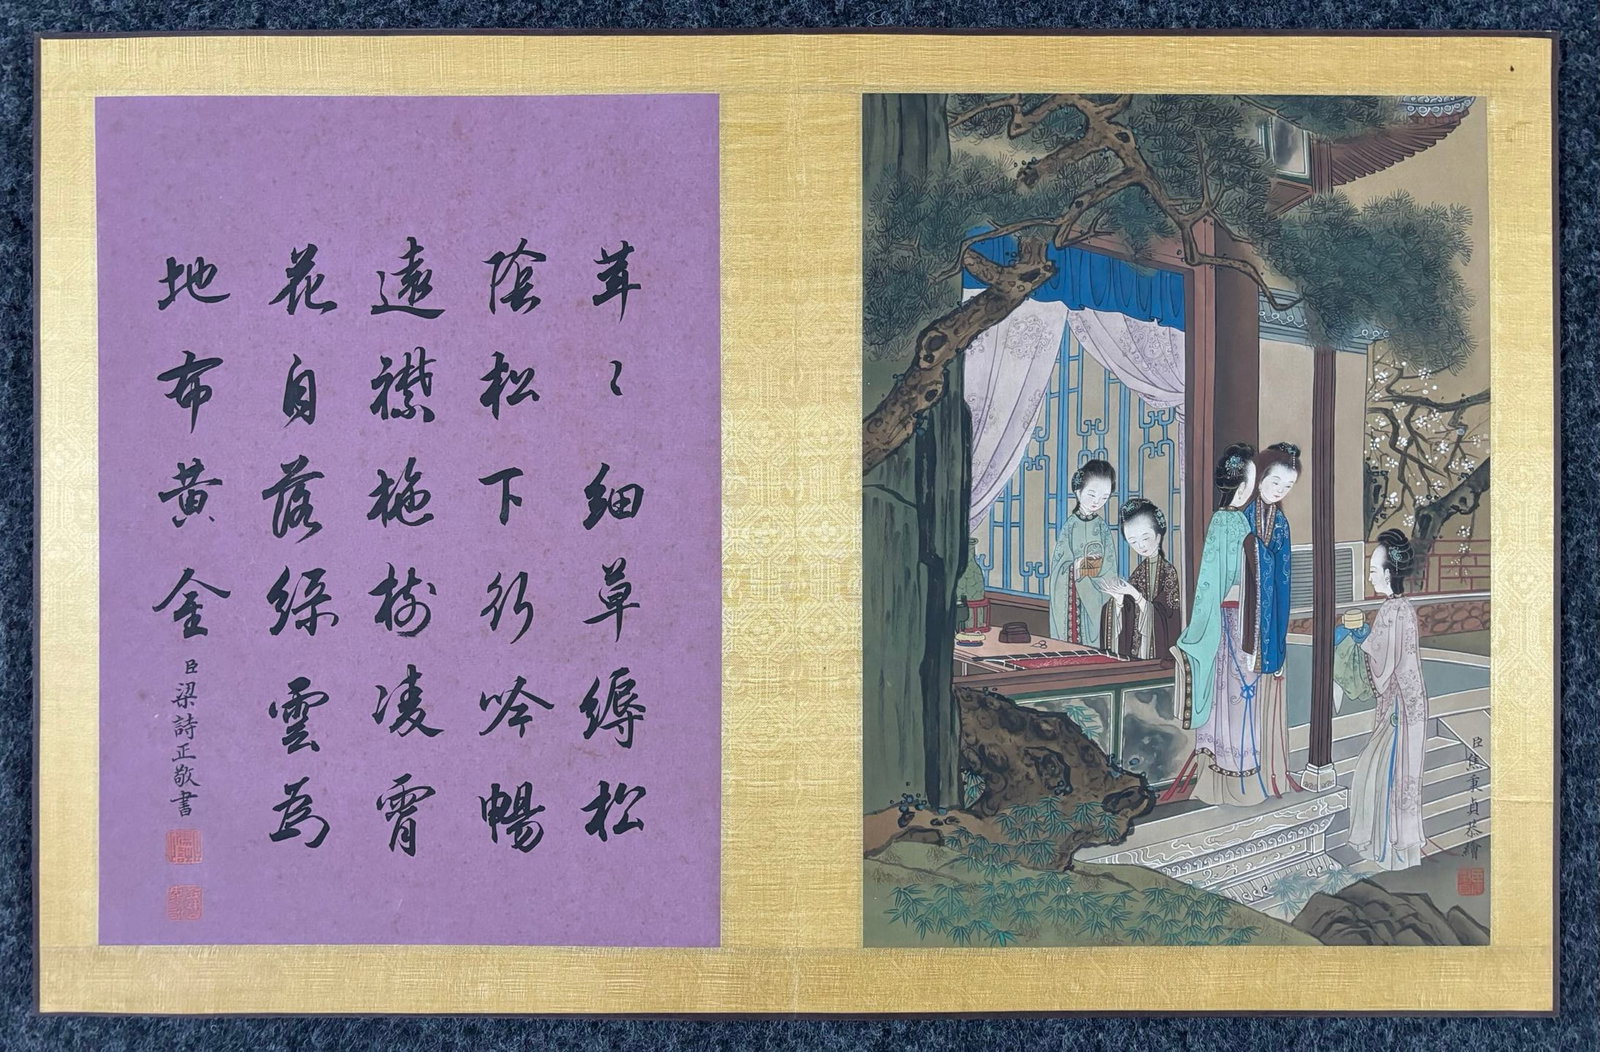 茸〻細草縟松
陰松下行吟暢
遠襟拖樹凌霄
花自落綵雲為
地布黃金
臣梁詩正敬書
臣焦秉貞恭繪